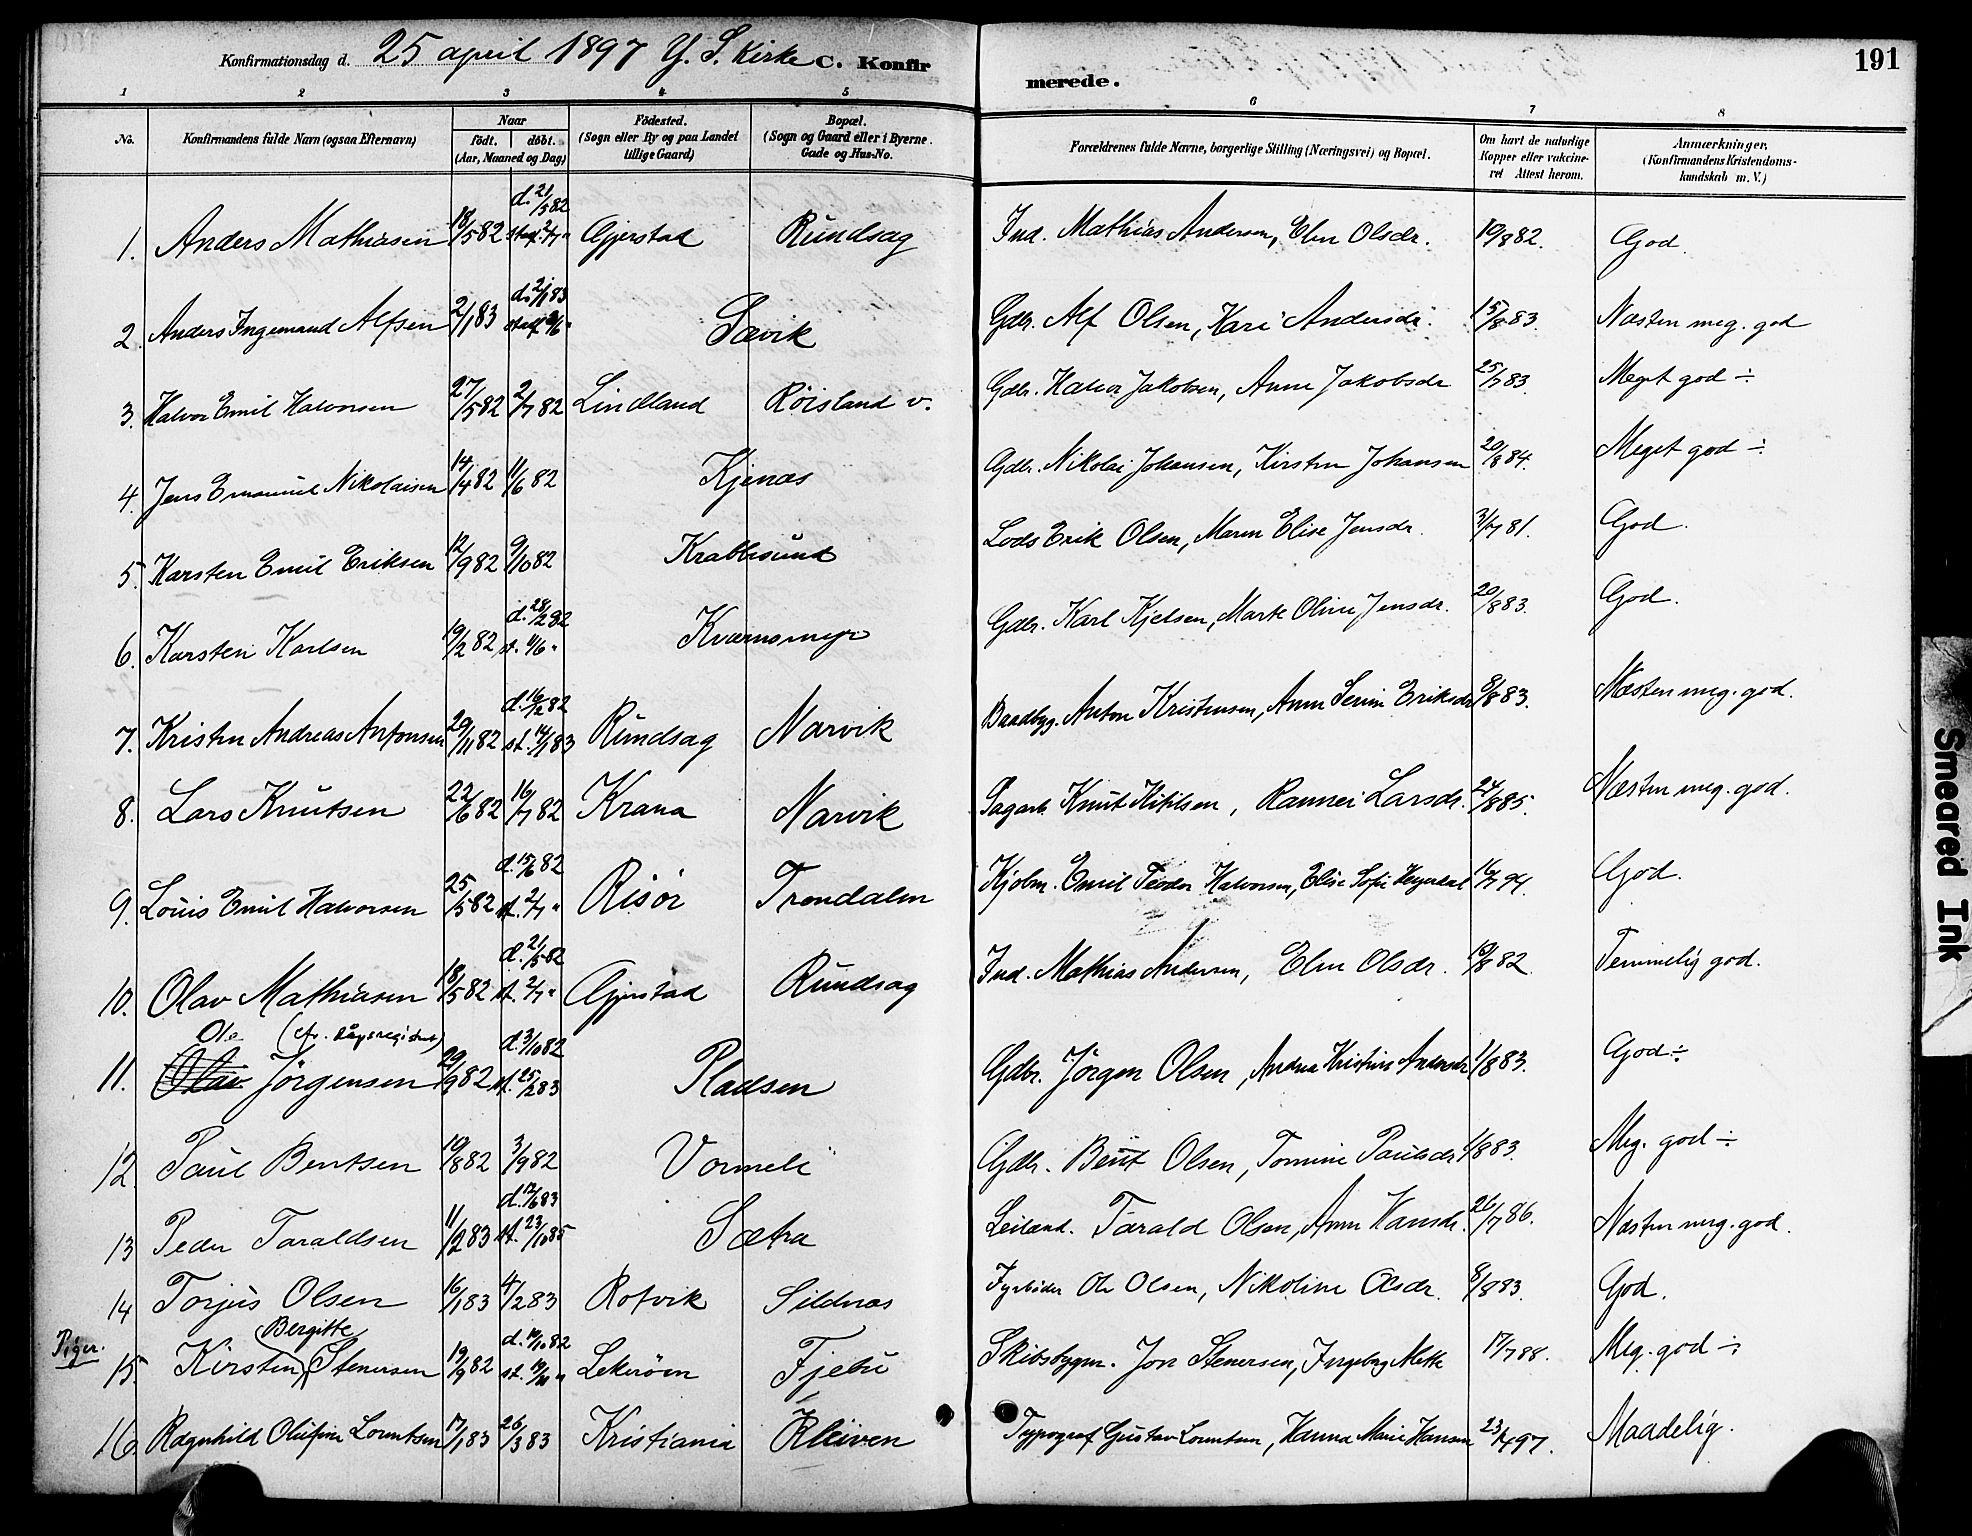 Konfirmationsdag d. 25 april 1897 Y. S. Kirke C. Konfir
merede. 191
1 2 3 4 5 6 7 8
No. Konfirmandens fulde Navn (ogsaa Efternavn) Naar födt. döbt. (Aar, Maaned og Dag) Födested. (Sogn eller By og paa Landet tillige Gaard) Bopæl. (Sogn og Gaard eller i Byerne Gade og Hus-No. Forældrenes fulde Navne, borgerlige Stilling (Næringsvei) og Bopæl. Om havt de naturlige Kopper eller vakcineret Attest herom. Anmærkninger. (Konfirmandens Kristendomskundskab m. V.)
1. Anders Mathiasen 18/5 82 d. 21/5 82 stadf. 2/7 " Gjerstad Rundsag Ind. Mathias Andersen, Elen Olsdr. 19/8 82. God.
2. Anders Ingemand Alfsen 2/1 83 d. 2/1 83 Sævik Gdbr. Alf Olsen, Kari Andersdr. 15/8 83. Næsten meg. god
3. Halvor Emil Halvorsen 27/5 82 2/7 82 Lindland Röisland v. Gdbr. Halvor Jakobsen, Anne Jakobsdr 25/7 83. Meget god ÷
4. Jens Emanuel Nikolaisen 14/4 82 11/6 82 Kjenæs Gdbr. Nikolai Johansen, Kirsten Johansen 20/8 84. Meget god ÷
5. Karsten Emil Eriksen 12/9 82 9/10 82 Krabbesund Lods Erik Olsen, Maren Elise Jensdr. 3/7 81. God.
6. Karsten Karlsen 19/2 82 d. 28/2 82 st. 11/6 " Kværnsmyr Gdbr. Karl Kjelsen, Marte Oline Jensdr. 20/8 83. God.
7. Kristen Andreas Antonsen 29/11 82 d. 16/12 82 st. 14/1 83 Rundsag Narvik Baadbyg. Anton Kristensen, Anne Serine Eriksdr 8/8 83. Næsten meg. god.
8. Lars Knutsen 22/6 82 16/7 82 Krana Narvik Sagarb. Knut Kittilsen, Rannei Larsdr. 24/8 85. Næsten meg. god.
9. Louis Emil Halvorsen 25/5 82 d. 15/6 82 st. 2/7 " Risör Trondalen Kjøbm. Emil Teodor Halvorsen, Elise Sofie 16/7 94. God.
10. Olav Mathiasen 18/5 82 d. 21/5 82 st. 2/7 " Gjerstad Rundsag Ind. Mathias Andersen, Elen Olsdr. 19/8 82. Temmelig god.
Ole (cfr. dåpsregistret)
11. Olav Jörgensen 29/9 82 d. 3/10 82 st. 25/2 83 Pladsen Gdbr. Jörgen Olsen, Andrea Kristine Andersdr 1/8 83. God ÷
12. Paul Bentsen 19/8 82 3/9 82 Vormeli Gdbr. Bent Olsen, Tomine Paulsdr 1/8 83. Meg. god ÷
13 Peder Taraldsen 11/2 83 d. 17/6 83 st. 23/10 85 Sætra Leilænd. Tarald Olsen, Anne Hansdr. 26/7 86. Næsten meg. god.
14 Torjus Olsen 16/1 83 4/2 83 Rotvik Sildnæs Fyrbøder Ole Olsen, Nikoline Olsdr. 8/8 83. God.
Piger.
Bergitte
15. Kirsten Stenersen 19/9 82 d. 14/10 82 st. 19/11 " Lekeröen Fjebu Skibsbygm. Jon Stenersen, Ingeborg Mette 17/7 88. Meg. god ÷
16. Ragnhild Olufine Lorentsen 17/1 83 26/3 83 Kristiania Kleiven Typograf Gustav Lorentsen, Hanna Marie Hansen 23/4 97. Maadelig.
Smeared Ink